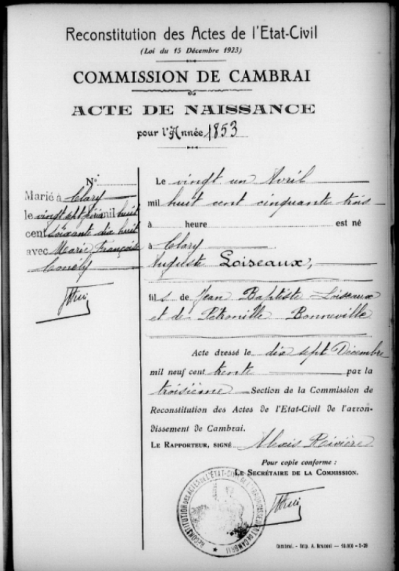 Reconstitution des Actes de l'Etat-Civil
(Loi du 15 Décembre 1923)
COMMISSION DE CAMBRAI
ACTE DE NAISSANCE
pour l'Année 1853
N°
Marié à Clary
le vingt sept
mil huit
cent soixante dix huit
avec Marie Françoise
Le vingt un Avril
mil huit cent cinquante trois
à heure est né
à Clary
Auguste Loiseaux,
fils de Jean Baptiste Loiseaux
et de Petronille Bonneville
Acte dressé le dix sept Décembre
mil neuf cent trente par la
troisième Section de la Commission de
Reconstitution des Actes de l'Etat-Civil de l'arron-
dissement de Cambrai.
LE RAPPORTEUR, SIGNÉ Alexis Rivière
Pour copie conforme :
LE SECRÉTAIRE DE LA COMMISSION.